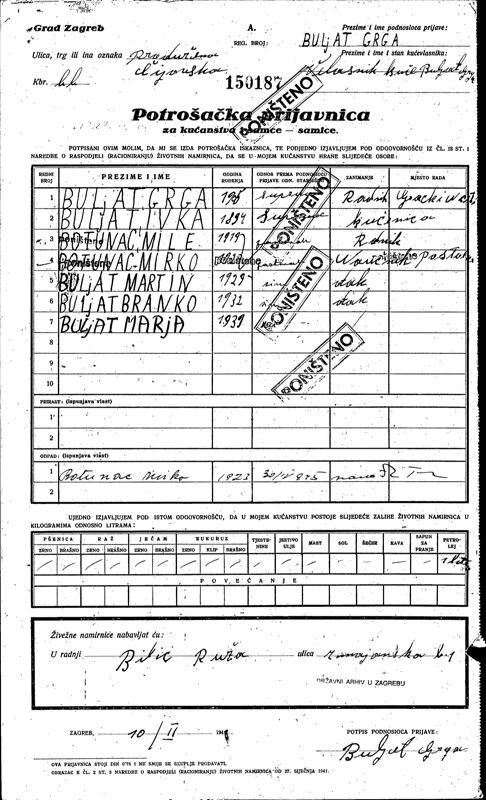 Grad Zagreb
A.
Prezime i ime podnosioca prijave:
REG. BROJ:
BULJAT GRGA
Ulica, trg ili ina oznaka
Prezime i ime i stan kućevlasnika:
Kbr. bb
150187
PONIŠTENO
Potrošačka prijavnica
za kućanstva i samce — samice.
POTPISANI OVIM MOLIM, DA MI SE IZDA POTROŠAČKA ISKAZNICA, TE PODJEDNO IZJAVLJUJEM POD ODGOVORNOŠĆU IZ ČL. 18 ST. 1
NAREDBE O RASPODJELI (RACIONIRANJU) ŽIVOTNIH NAMIRNICA, DA SE U MOJEM KUĆANSTVU HRANE SLIJEDEĆE OSOBE:
REDNI BROJ PREZIME I IME GODINA ROĐENJA ODNOS PREMA PODNOSIOCU PRIJAVE ODN. STARJEŠINI ZANIMANJE MJESTO RADA
1 BULJAT GRGA
2 BULJAT IVKA 1894 kućanica
3 poništeno MILE 1919 Radnik
4 poništeno MIRKO poništeno
5 BULJAT MARTIN 1929 sin đak
6 BULJAT BRANKO 1932 đak
7 BULJAT MARJA 1939
8
9
10
PONIŠTENO
PONIŠTENO
PONIŠTENO
PRIRAST: (ispunjava vlast)
1
2
OTPAD: (ispunjava vlast)
1 Mirko 1923
2
UJEDNO IZJAVLJUJEM POD ISTOM ODGOVORNOŠĆU, DA U MOJEM KUĆANSTVU POSTOJE SLIJEDEĆE ZALIHE ŽIVOTNIH NAMIRNICA U
KILOGRAMIMA ODNOSNO LITRAMA:
PŠENICA RAŽ JEČAM KUKURUZ TJESTENINE JESTIVO ULJE MAST SOL ŠEĆER KAVA SAPUN ZA PRANJE PETROLEJ
ZRNO BRAŠNO ZRNO BRAŠNO ZRNO BRAŠNO ZRNO KLIP BRAŠNO
— — — — — — — — — — — — — — — —
POVEĆANJE
Živežne namirnice nabavljat ću:
U radnji Bilić Ruža ulica
DRŽAVNI ARHIV U ZAGREBU
ZAGREB, 10/II 194
POTPIS PODNOSIOCA PRIJAVE:
Buljat Grga
OVA PRIJAVNICA STOJI DIN 0.75 I NE SMIJE SE SKUPLJE PRODAVATI.
OBRAZAC K ČL. 2 ST. 3 NAREDBE O RASPODJELI (RACIONIRANJU) ŽIVOTNIH NAMIRNICA OD 27. SIJEČNJA 1941.